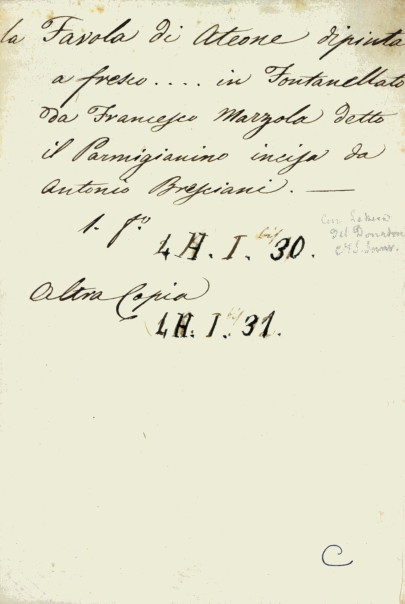 la Favola di Ateone dipinta
a fresco .... in Fontanellato
da Francesco Mazzola detto
il Parmigianino incisa da
Antonio Bresciani. —
1. fº.
4 H. I. bis 30.
Altra Copia
4 H. I. bis 31.
C